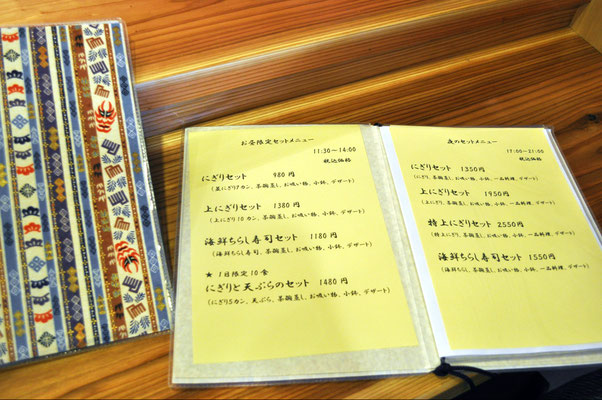 お昼限定セットメニュー
11:30〜14:00
税込価格
にぎりセット 980円
(並にぎり7カン、茶碗蒸し、お吸い物、小鉢、デザート)
上にぎりセット 1380円
(上にぎり10カン、茶碗蒸し、お吸い物、小鉢、デザート)
海鮮ちらし寿司セット 1180円
(海鮮ちらし寿司、茶碗蒸し、お吸い物、小鉢、デザート)
★ 1日限定10食
にぎりと天ぷらのセット 1480円
(にぎり5カン、天ぷら、茶碗蒸し、お吸い物、小鉢、デザート)
夜のセットメニュー
17:00〜21:00
税込価格
にぎりセット 1350円
(並にぎり、茶碗蒸し、お吸い物、小鉢、一品料理、デザート)
上にぎりセット 1950円
(上にぎり、茶碗蒸し、お吸い物、小鉢、一品料理、デザート)
特上にぎりセット 2550円
(特上にぎり、茶碗蒸し、お吸い物、小鉢、一品料理、デザート)
海鮮ちらし寿司セット 1550円
(海鮮ちらし寿司、茶碗蒸し、お吸い物、小鉢、一品料理、デザート)